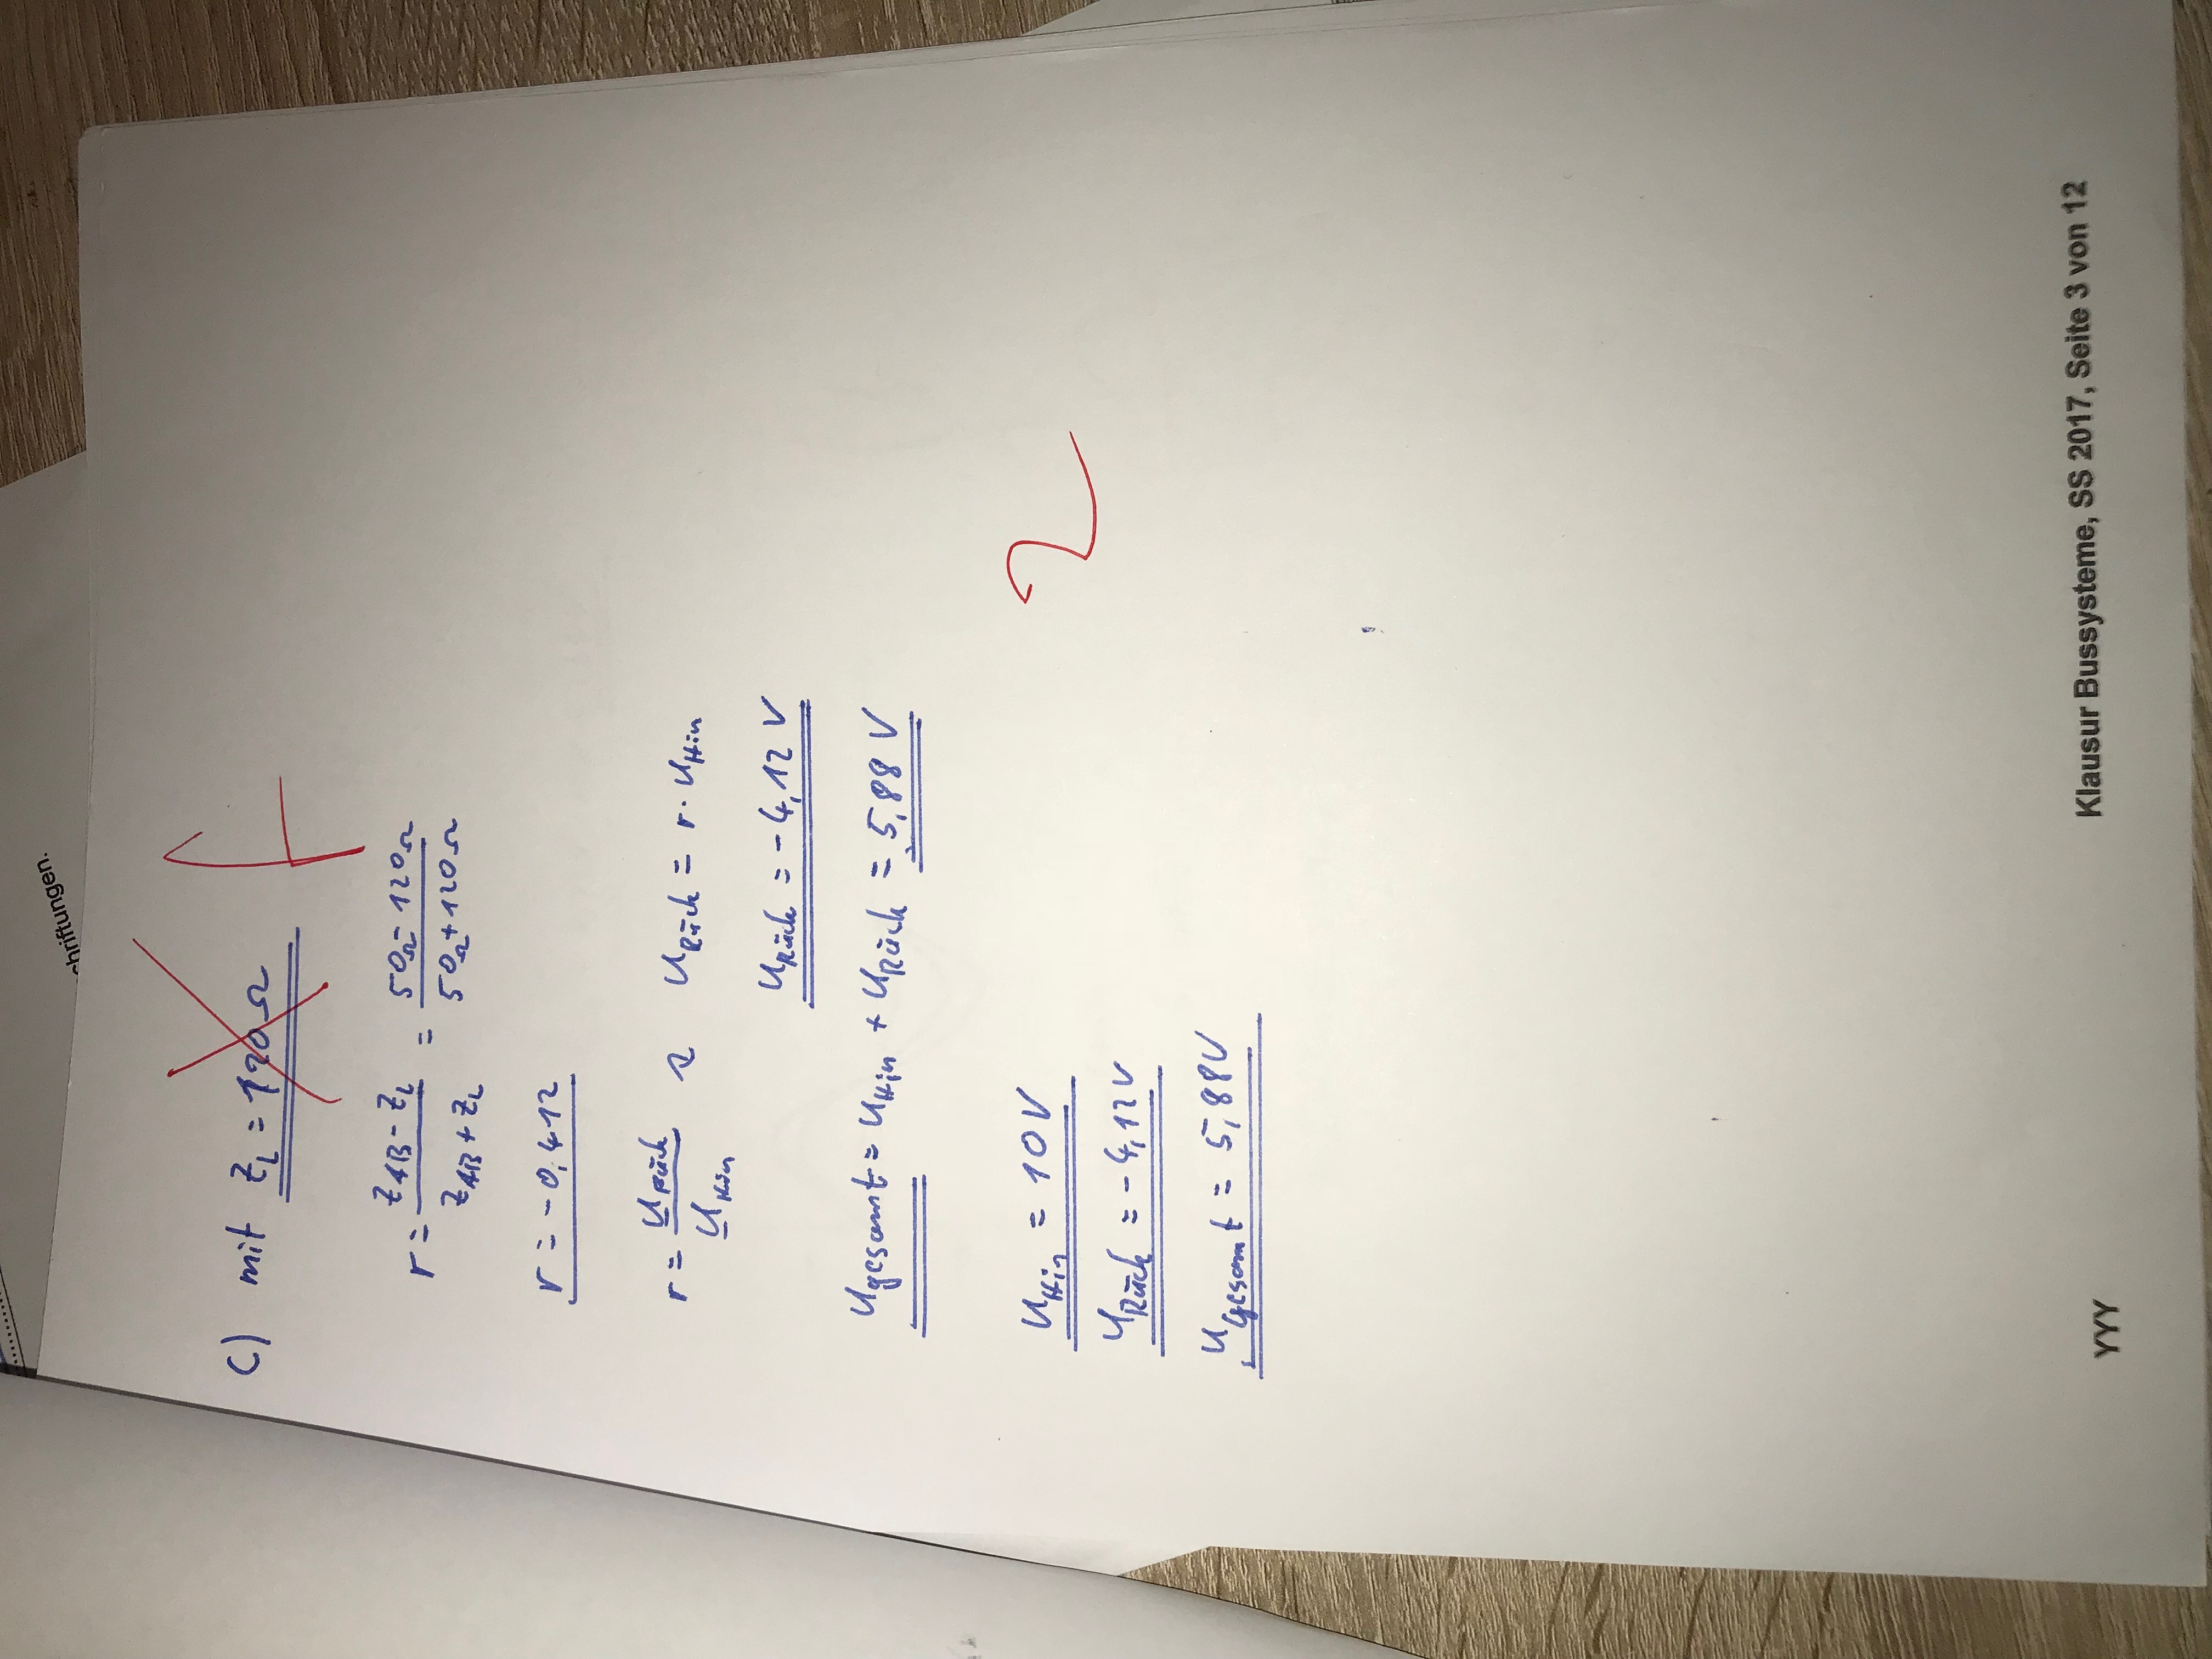 chriftungen.
c) mit Z_L = 120 Ω f
r = (Z_AB - Z_L) / (Z_AB + Z_L) = (50Ω - 120Ω) / (50Ω + 120Ω)
r = -0,412
r = U_Rück / U_Hin U_Rück = r · U_Hin
U_Rück = -4,12 V
U_gesamt = U_Hin + U_Rück = 5,88 V
U_Hin = 10 V
2
U_Rück = -4,12 V
U_Gesamt = 5,88 V
YYY
Klausur Bussysteme, SS 2017, Seite 3 von 12